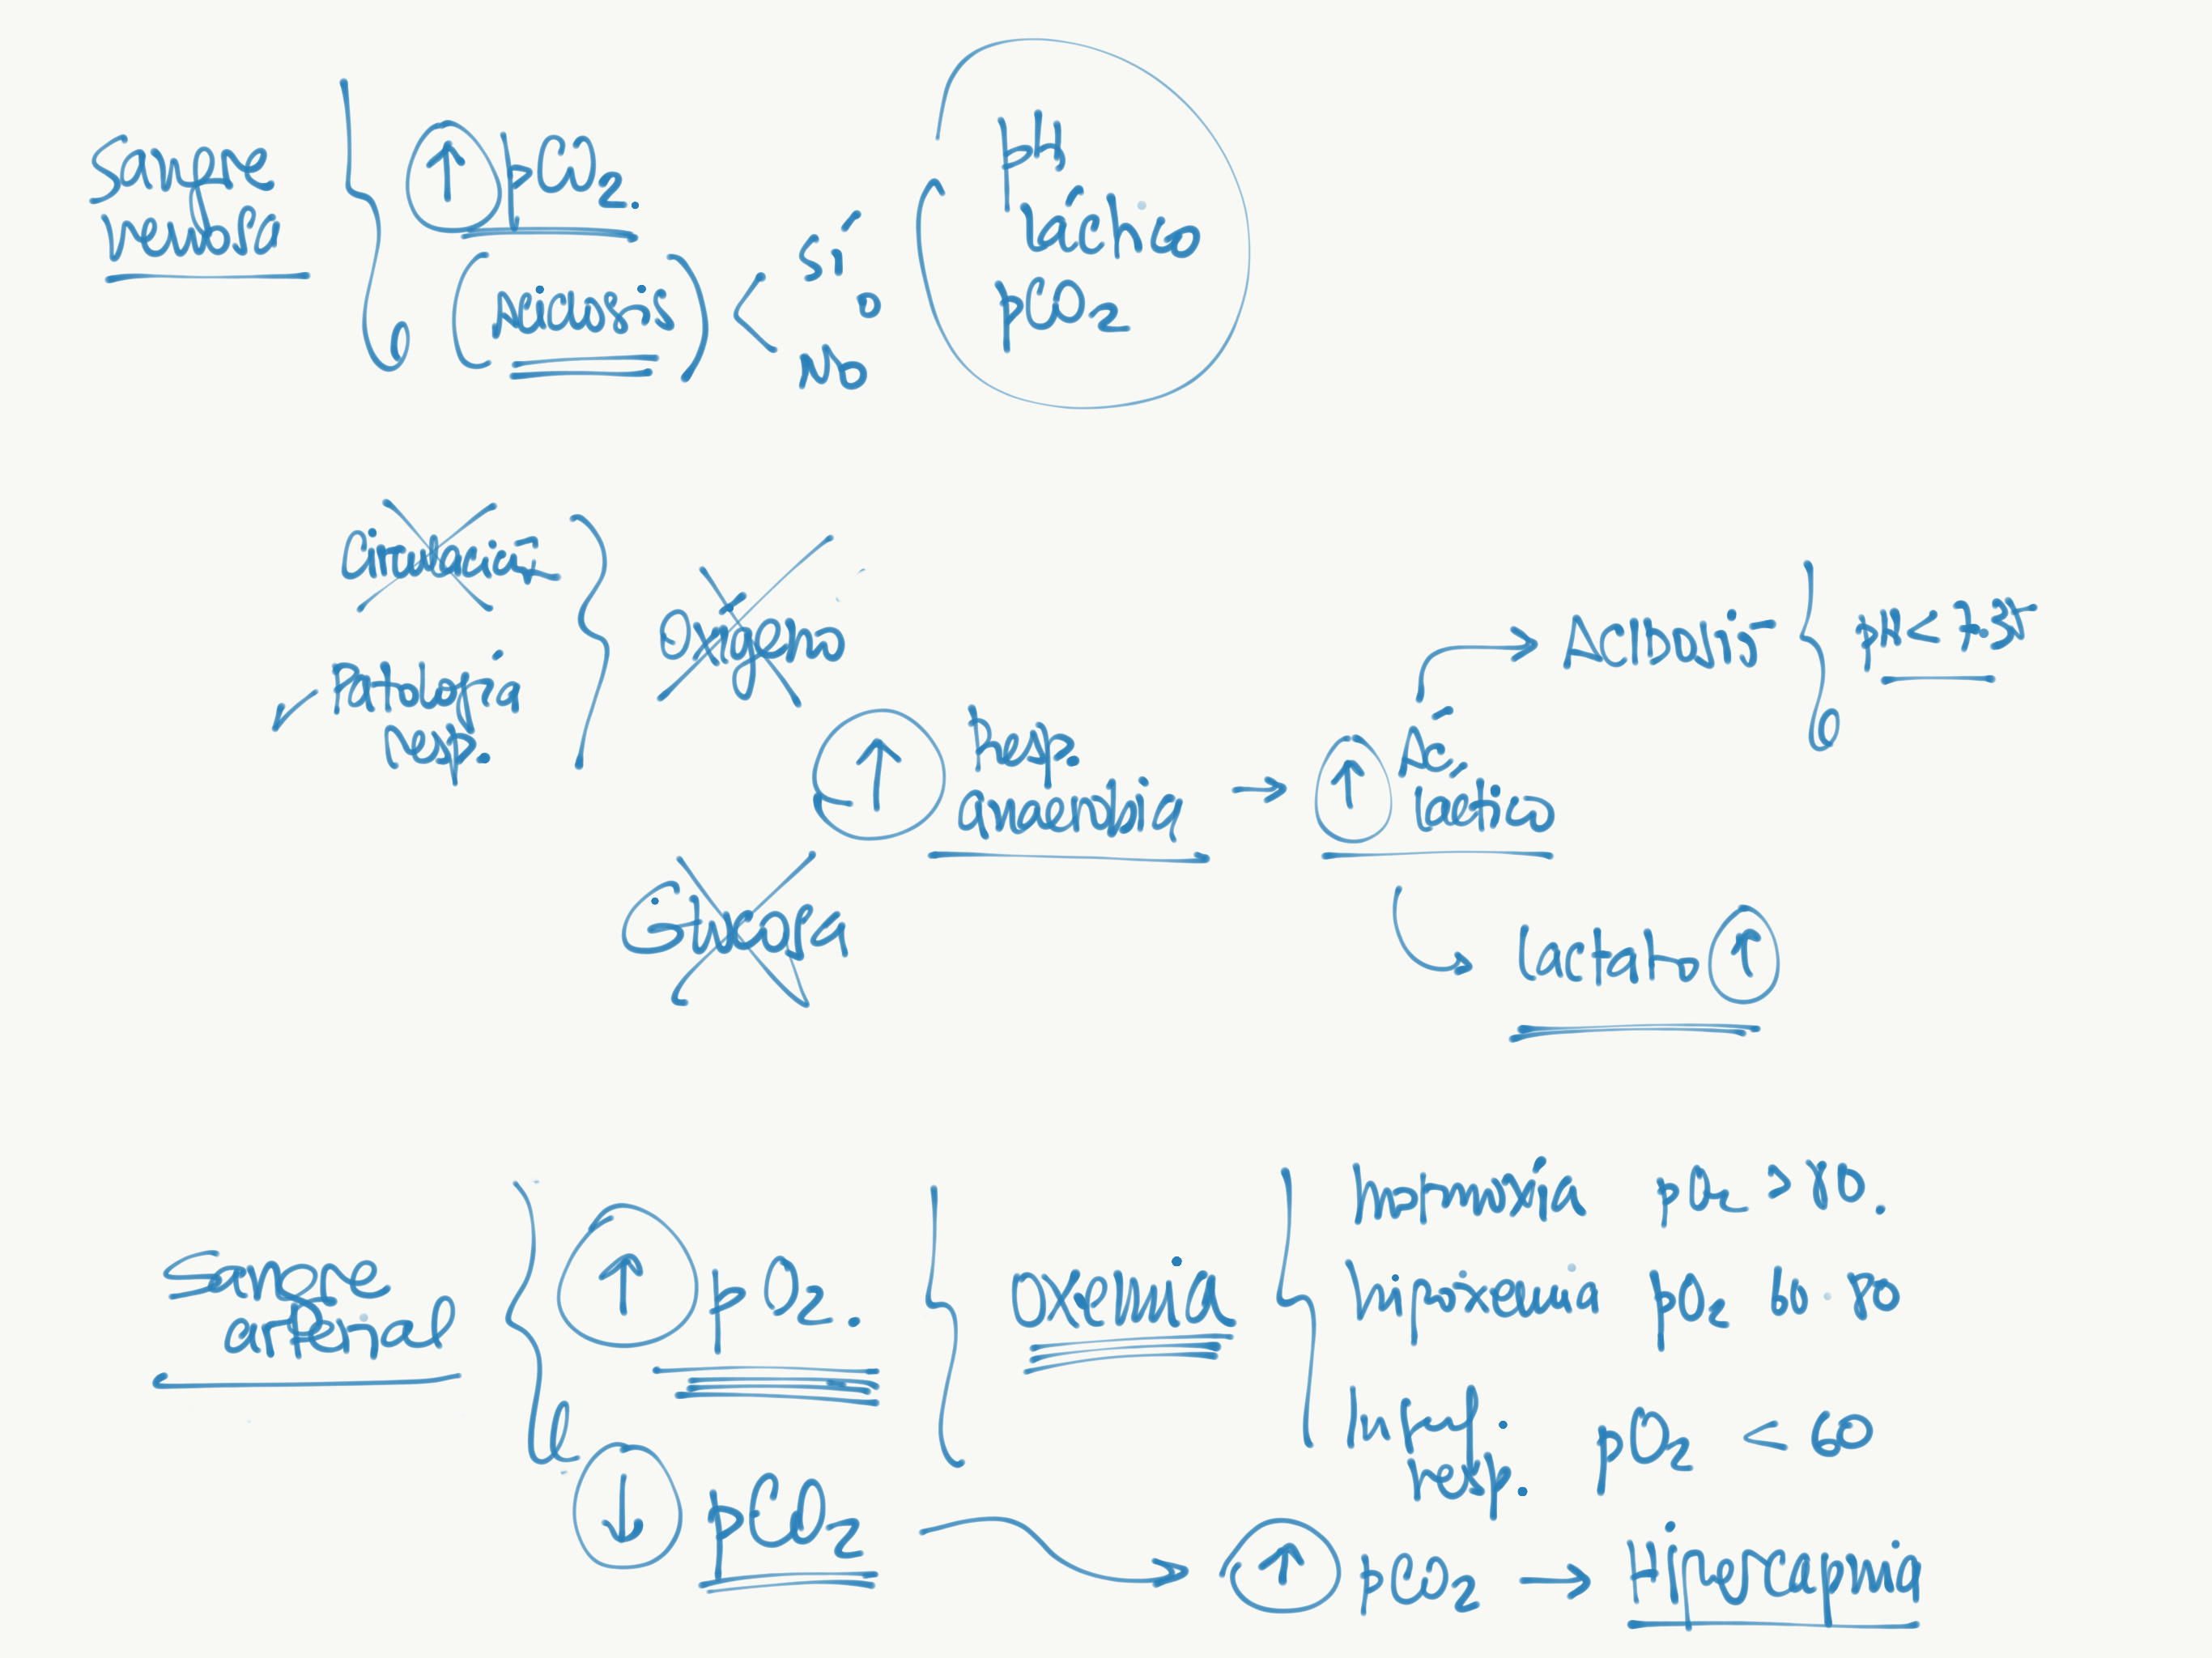 Sangre
venosa
↑ pCO2.
(Acidosis) < sí
o
No
pH
Láctico
pCO2
Circulación
Patología
resp.
Oxígeno
↑ Resp.
anaerobia → ↑ Ác.
láctico
→ ACIDOSIS
pH < 7.35
Glucosa
Lactato ↑
Sangre
arterial
↑ pO2.
Oxemia
normoxia pO2 > 80.
hipoxemia pO2 60 80
Insuf.
resp. pO2 < 60
↓ pCO2 → ↑ pCO2 → Hipercapnia